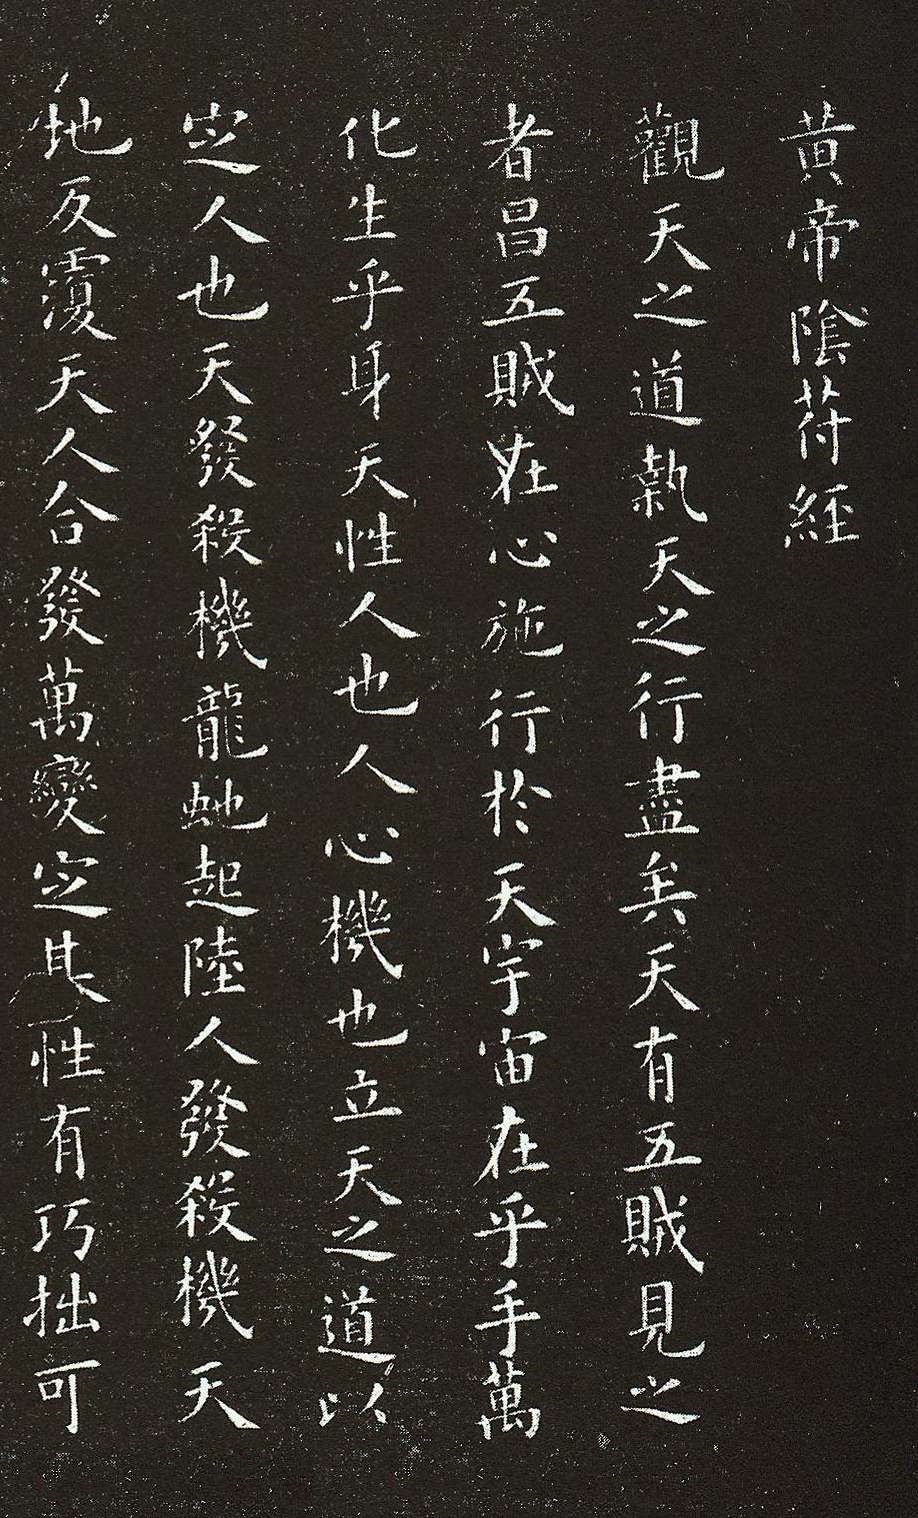 黄帝陰苻經
觀天之道執天之行盡矣天有五賊見之
者昌五賊在心施行於天宇宙在乎手萬
化生乎身天性人也人心機也立天之道以
定人也天發殺機龍虵起陸人發殺機天
地反覆天人合發萬變定其性有巧拙可